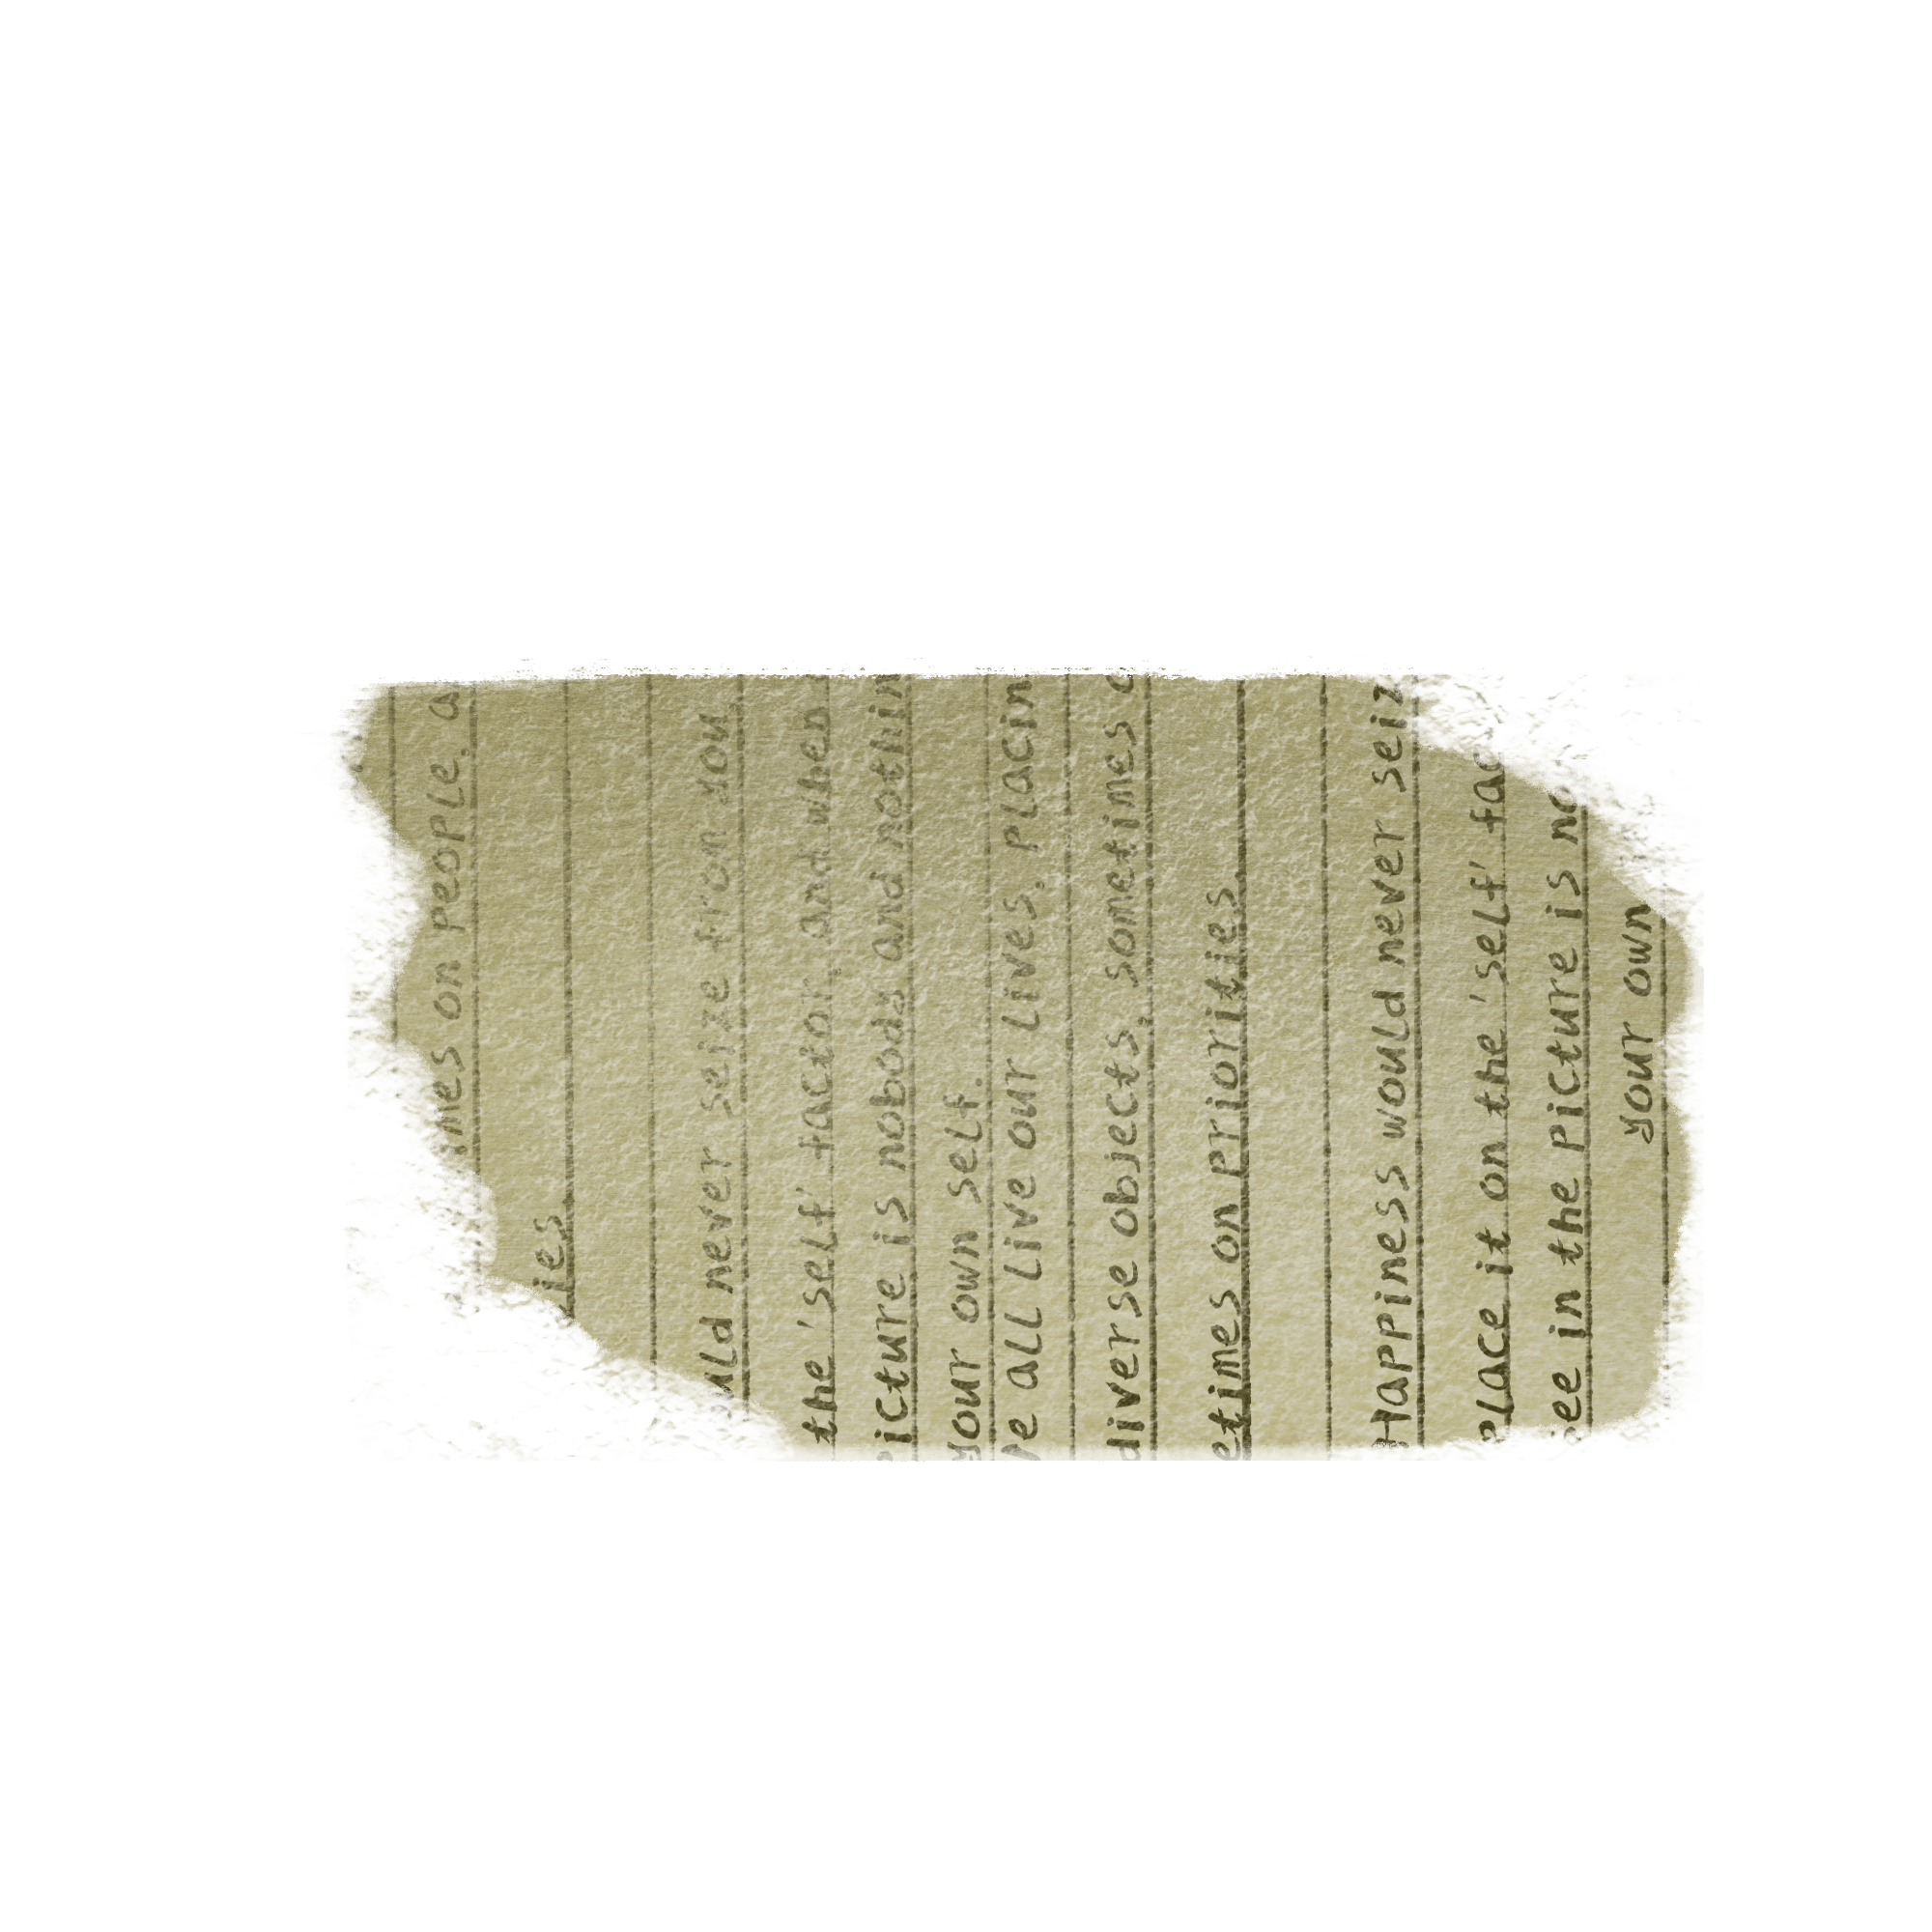 on people, a
never seize from you,
the 'self' factor, and when
picture is nobody and nothin
your own self.
all live our lives. Placin
diverse objects, sometimes
etimes on priorities.
Happiness would never seiz
Place it on the 'self' fac
in the picture is
your own